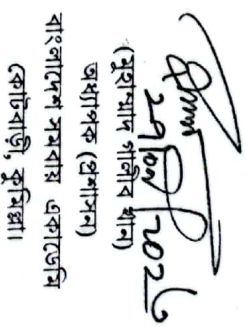 (মুহাম্মাদ গালিব খান)
অধ্যাপক (প্রশাসন)
বাংলাদেশ সমবায় একাডেমি
কোটবাড়ি, কুমিল্লা।